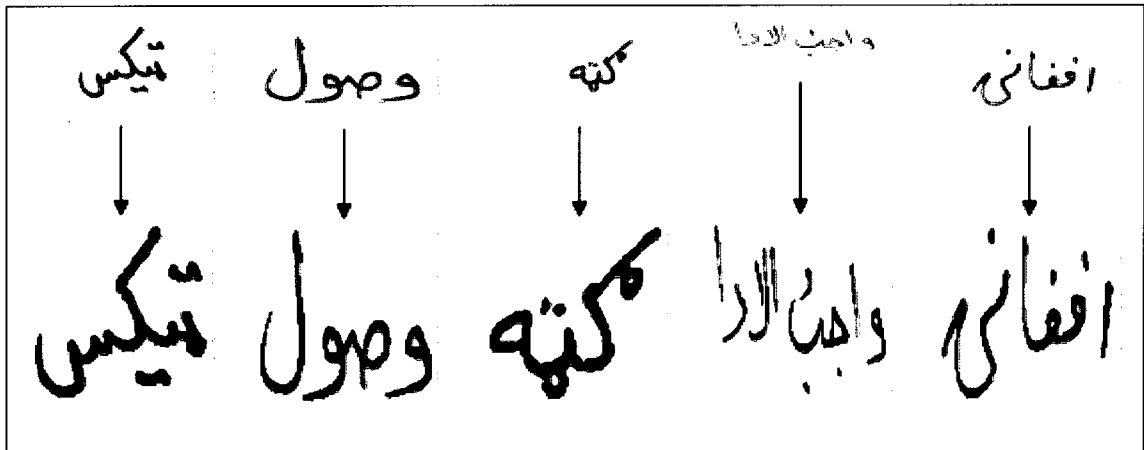 افغانی واجب الادا ګټه وصول تیکس
افغانی واجب الادا ګټه وصول تیکس